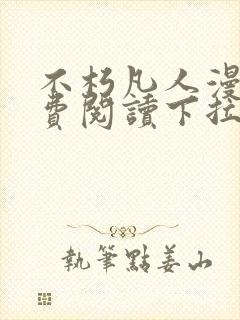 不朽凡人漫
費閱讀下拉
執筆點姜山